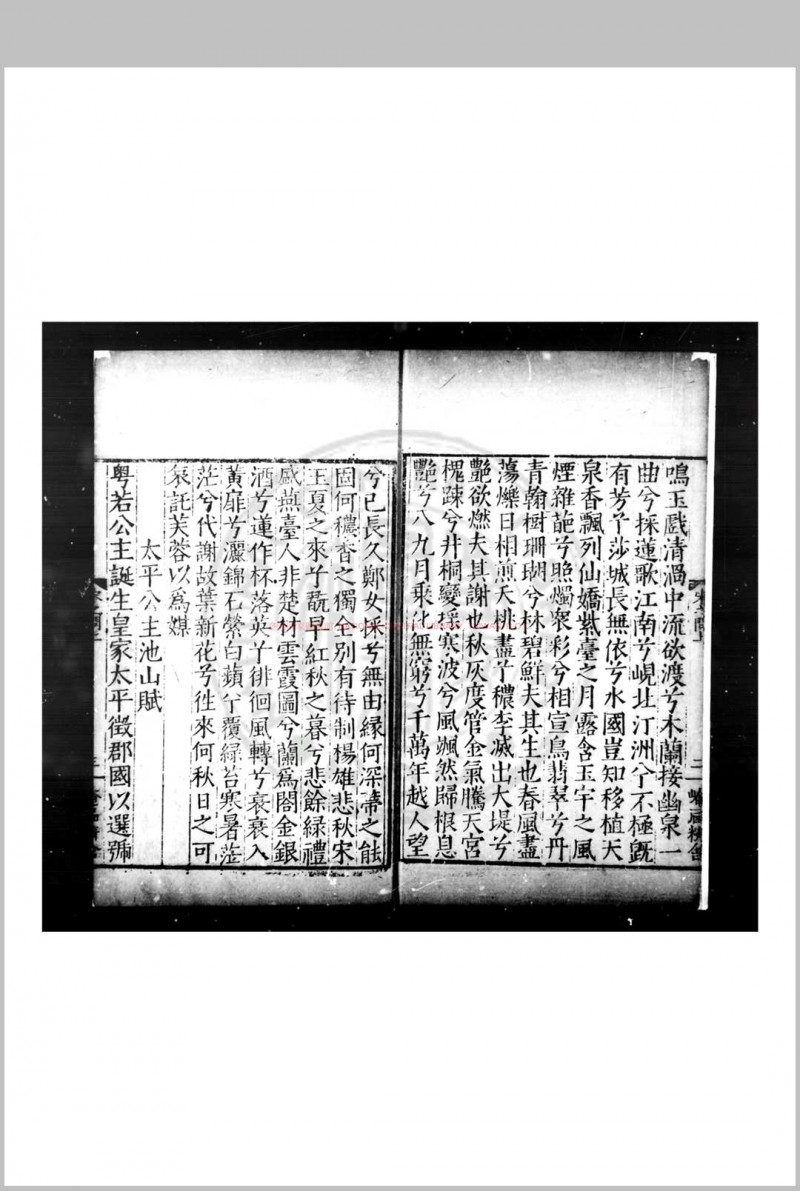 鳴玉戲清渦中流欲渡兮木蘭接幽泉一
曲兮採蓮歌江南兮峴北汀洲兮不極旣
有芳兮莎城長無依兮水國豈知移植天
泉香飄列仙嬌紫臺之月露含玉宇之風
煙雜葩兮照燭衆彩兮相宣鳥翡翠兮丹
青翰樹珊瑚兮林碧鮮夫其生也春風盡
蕩爍日相煎天桃盡兮穠李滅出大堤兮
艷欲燃夫其謝也秋灰度管金氣騰天宮
槐疎兮井桐變揺寒波兮風颯然歸根息
艷兮八九月乗化無窮兮千萬年越人望
兮已長久鄭女採兮無由緣何深蔕之能
固何穠香之獨全別有待制楊雄悲秋宋
玉夏之來兮翫早紅秋之暮兮悲餘綠禮
盛燕臺人非楚材雲霞圖兮蘭爲閣金銀
酒兮蓮作杯落英兮徘徊風轉兮衰衰入
黃扉兮灑錦石縈白蘋兮覆綠苔寒暑茫
茫兮代謝故葉新花兮徃來何秋日之可
哀託芙蓉以爲媒
太平公主池山賦
粤若公主誕生皇家太平徵郡國以選號
二
三